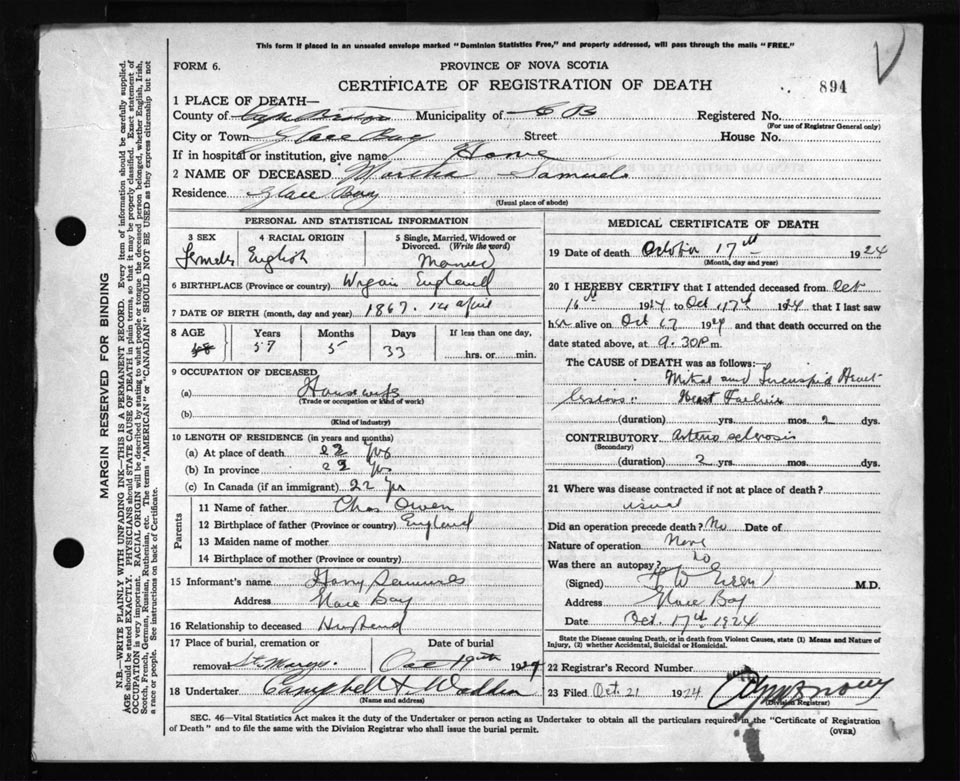 This form if placed in an unsealed envelope marked "Dominion Statistics Free," and properly addressed, will pass through the mails "FREE."
FORM 6. PROVINCE OF NOVA SCOTIA
CERTIFICATE OF REGISTRATION OF DEATH 894
1 PLACE OF DEATH—
County of Cape Breton Municipality of C B Registered No.
(For use of Registrar General only)
City or Town Glace Bay Street House No.
If in hospital or institution, give name Home
2 NAME OF DECEASED Martha Samuels
Residence Glace Bay
(Usual place of abode)
PERSONAL AND STATISTICAL INFORMATION
3 SEX 4 RACIAL ORIGIN 5 Single, Married, Widowed or Divorced. (Write the word)
Female English Married
6 BIRTHPLACE (Province or country) Wigan England
7 DATE OF BIRTH (month, day and year) 1867. 14 April
8 AGE Years Months Days If less than one day,
57 5 33 hrs. or min.
9 OCCUPATION OF DECEASED
(a) Housewife
(Trade or occupation or kind of work)
(b)
(Kind of industry)
10 LENGTH OF RESIDENCE (in years and months)
(a) At place of death 22 yrs
(b) In province 22 yrs
(c) In Canada (if an immigrant) 22 yr
Parents
11 Name of father Chas Owen
12 Birthplace of father (Province or country) England
13 Maiden name of mother
14 Birthplace of mother (Province or country)
15 Informant's name Harry Samuels
Address Glace Bay
16 Relationship to deceased Husband
17 Place of burial, cremation or Date of burial
removal St. Marys. Oct 19th 1924
18 Undertaker Campbell & Wadden
(Name and address)
MEDICAL CERTIFICATE OF DEATH
19 Date of death October 17th 1924
(Month, day and year)
20 I HEREBY CERTIFY that I attended deceased from Oct
16th 1924 to Oct 17th 1924 that I last saw
her alive on Oct 17 1924 and that death occurred on the
date stated above, at 9.30P.m.
The CAUSE of DEATH was as follows:
Mitral and Tricuspid Heart
lesions: Heart Failure
(duration) yrs. mos. 2 dys.
CONTRIBUTORY Arterio sclerosis
(Secondary)
(duration) 2 yrs. mos. dys.
21 Where was disease contracted if not at place of death?
usual
Did an operation precede death? No Date of
Nature of operation None
Was there an autopsy? No
(Signed) M.D.
Address Glace Bay
Date Oct. 17th 1924
State the Disease causing Death, or in death from Violent Causes, state (1) Means and Nature of Injury, (2) whether Accidental, Suicidal or Homicidal.
22 Registrar's Record Number
23 Filed Oct. 21 1924
(Division Registrar)
SEC. 46—Vital Statistics Act makes it the duty of the Undertaker or person acting as Undertaker to obtain all the particulars required in the "Certificate of Registration
of Death" and to file the same with the Division Registrar who shall issue the burial permit. (OVER)
MARGIN RESERVED FOR BINDING
N.B.—WRITE PLAINLY WITH UNFADING INK—THIS IS A PERMANENT RECORD. Every item of information should be carefully supplied.
AGE should be stated EXACTLY. PHYSICIANS should STATE CAUSE OF DEATH in plain terms, so that it may be properly classified. Exact statement of
OCCUPATION is very important. RACIAL ORIGIN will be described by stating to what people or tongue the deceased person belonged, whether English, Irish,
Scotch, French, German, Russian, Ruthenian, etc. The terms "AMERICAN" or "CANADIAN" SHOULD NOT BE USED as they express citizenship but not
a race or people. See instructions on back of Certificate.